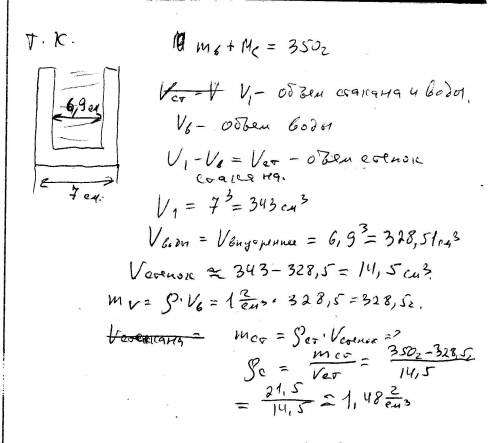 Т. К.
m_в + M_с = 350г
6,9 см
7 см.
V_ст = V V₁ – объем стакана и воды.
V_в – объем воды
V₁ – V_в = V_ст – объем стенок
стакана.
V₁ = 7³ = 343 см³
V_воды = V_внутреннее = 6,9³ = 328,51 см³
V_стенок ≈ 343 – 328,5 = 14,5 см³.
m_v = ρ · V_в = 1 г/см³ · 328,5 = 328,5г.
V_стакана = m_ст = ρ_ст · V_стенок =>
ρ_с = m_ст/V_ст = 350г – 328,5г/14,5
= 21,5/14,5 ≈ 1,48 г/см³